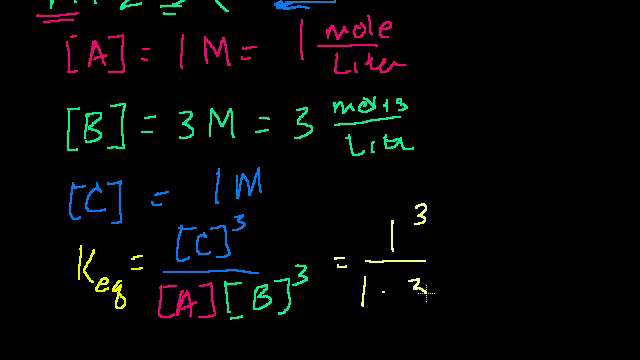 [A] = 1 M = 1 mole/Liter
[B] = 3 M = 3 moles/Liter
[C] = 1 M
Keq = [C]³/[A][B]³ = 1³/1 · 3